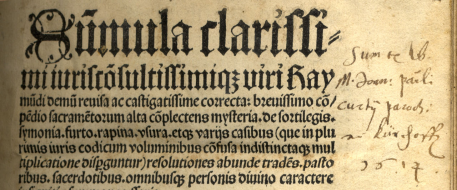 Sūmula clarissi-
mi iuriscōsultissimiqꝫ viri Ray
mūdi demū reuisa ac castigatissime correcta: breuissimo cō-
pēdio sacramētorum alta cōplectens mysteria. de sortilegis.
symonia. furto. rapina. vsura. etqꝫ varijs casibus (que in plu
rimis iuris codicum voluminibus cōfusa indistinctaqꝫ mul
tiplicatione disp̄guntur) resolutiones abunde tradēs. pasto
ribus. sacerdotibus. omnibusqꝫ personis diuino caractere
Sum ex
M. Joan: pauli
curtij paroch:
a Kirchorff
1617